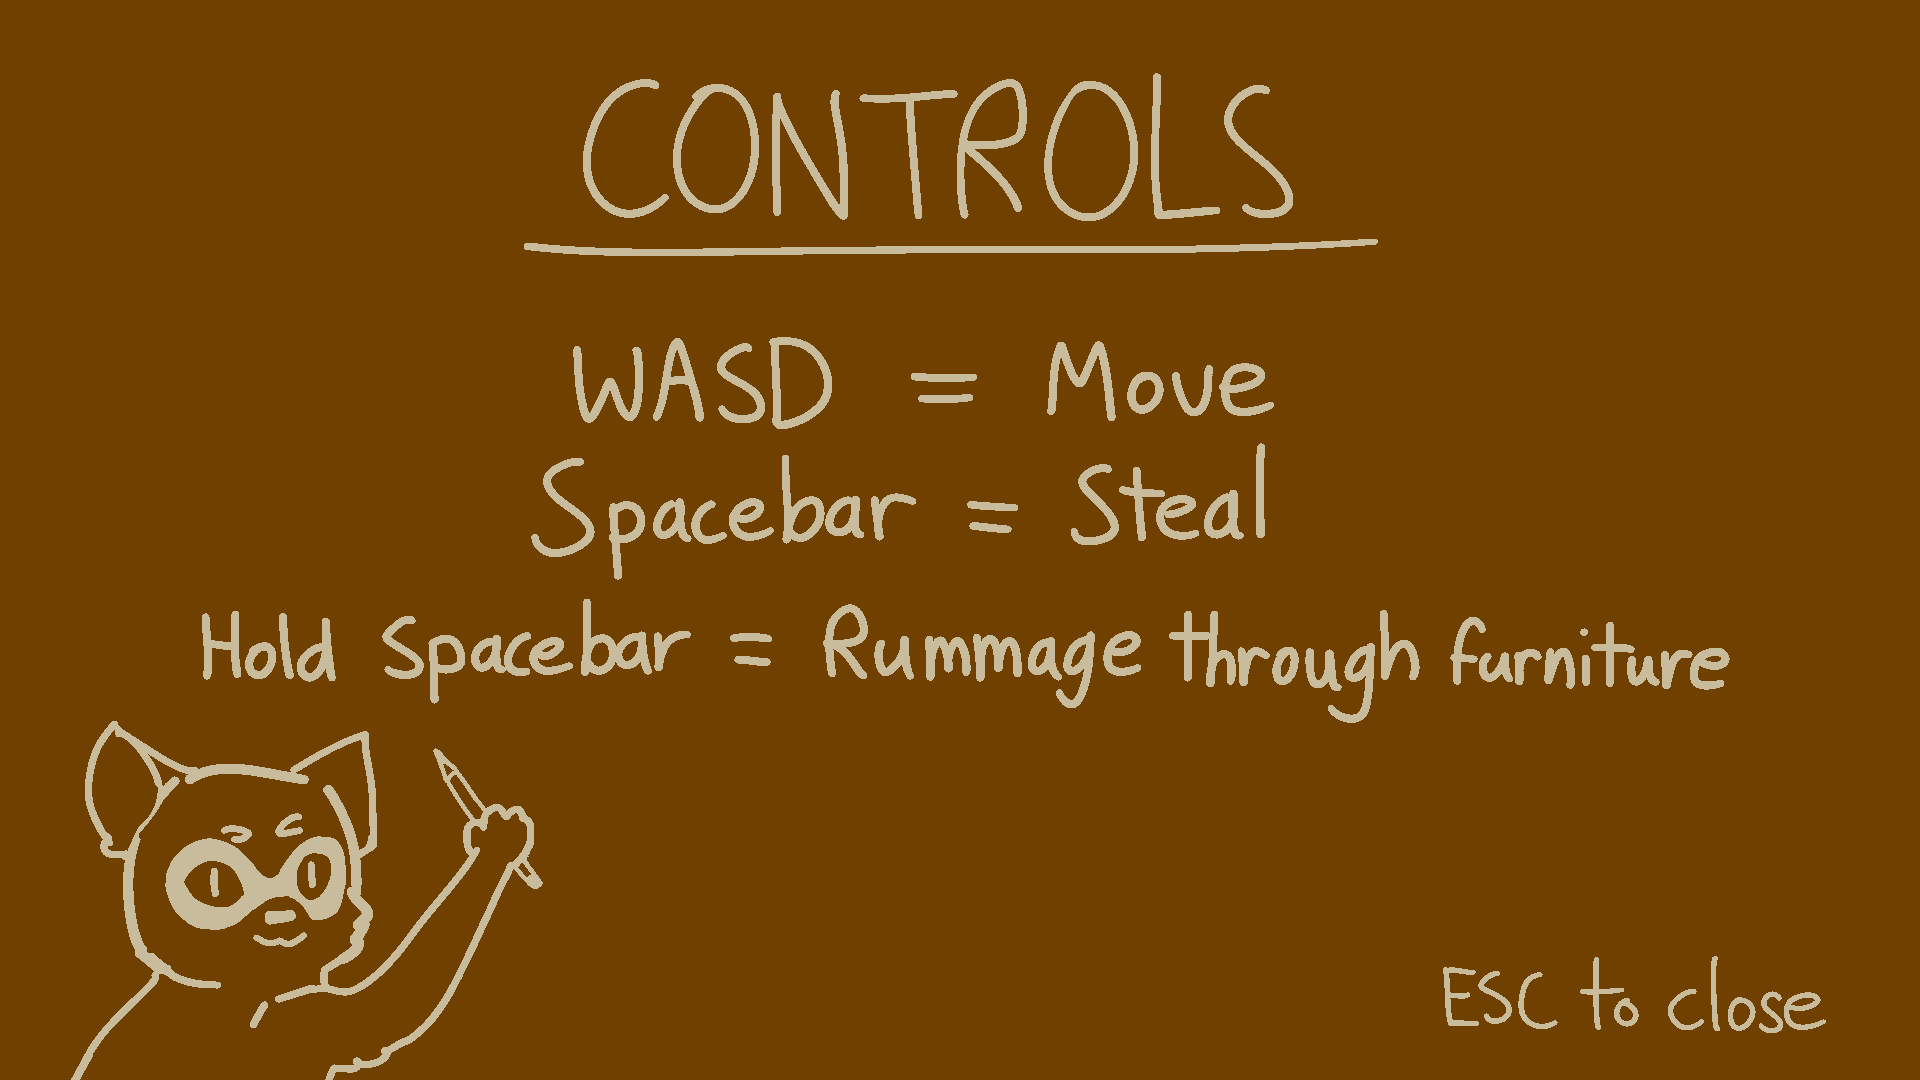 CONTROLS
WASD = Move
Spacebar = Steal
Hold Spacebar = Rummage through furniture
ESC to close